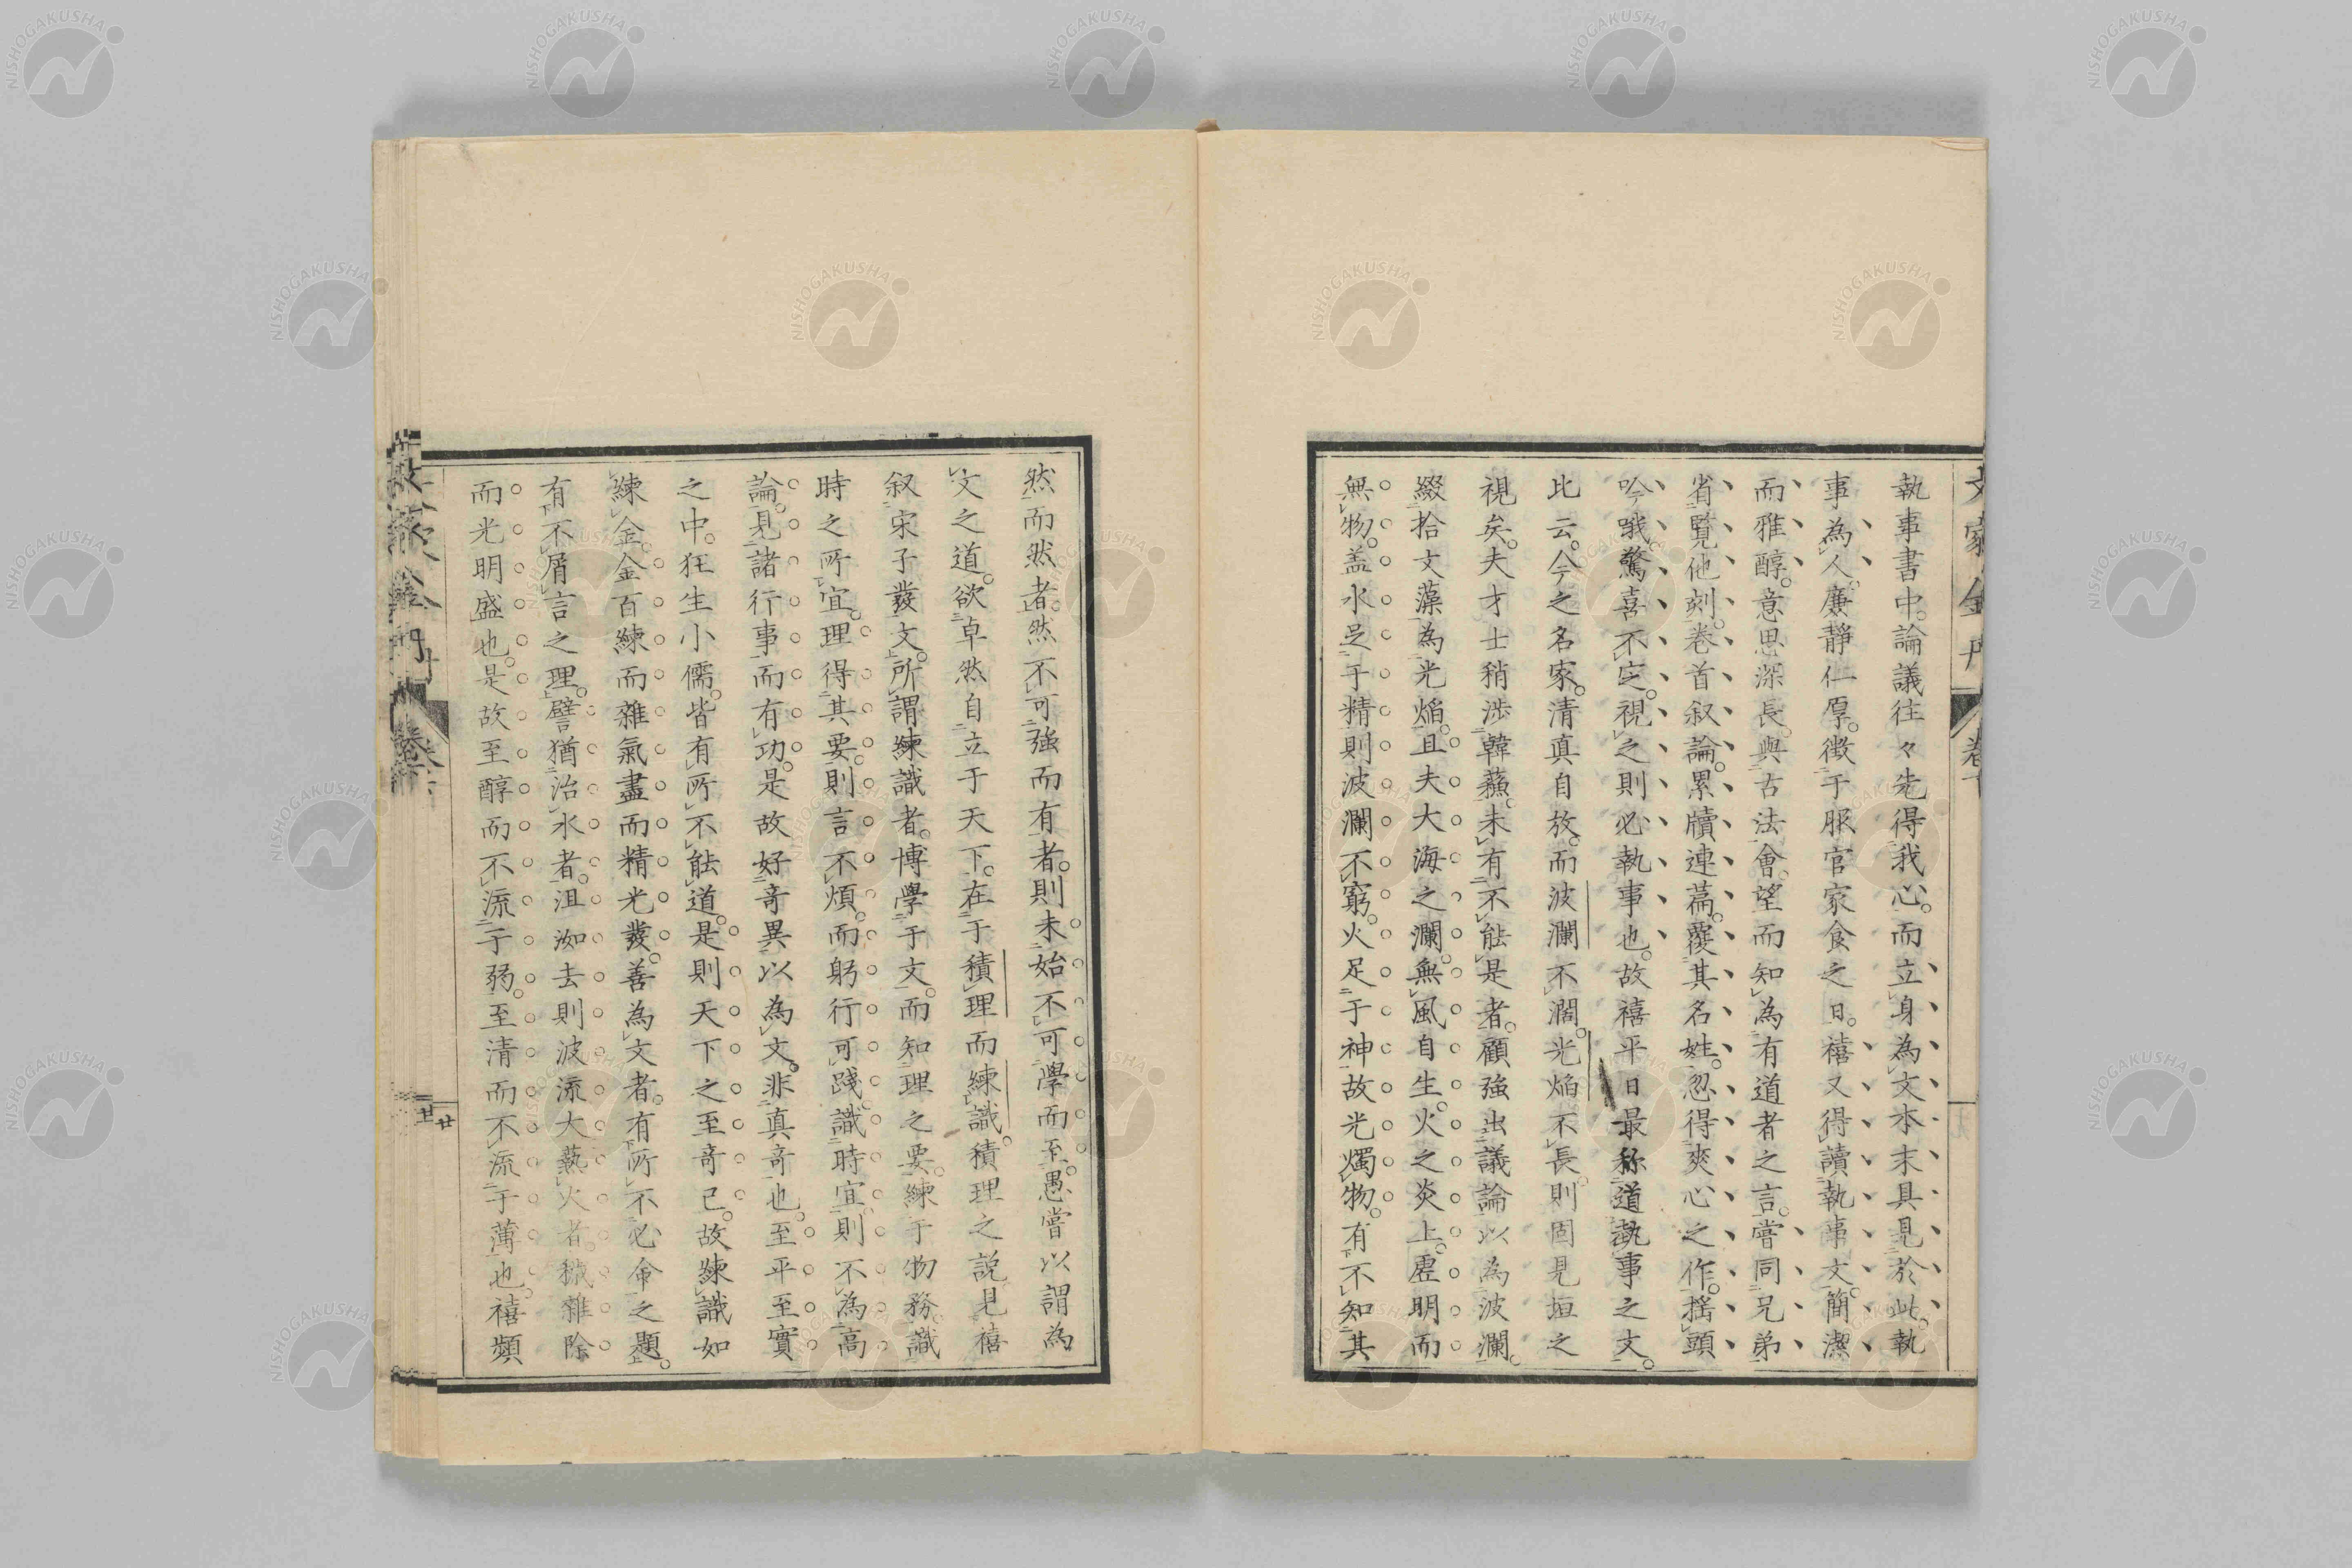 執事書中。論議往々先得我心。而立身為文本末具見於此。執
事為人。廉静仁厚。徴于服官家食之日。禧又得讀執事文。簡潔
而雅醇。意思深長。與古法會。望而知為有道者之言。嘗同兄弟
省覧他刻。卷首叙論。累牘連篇。覆其名姓。忽得爽心之作。揺頭
吟哦驚喜不定。視之則必執事也。故禧平日最称道執事之文。
比云。今之名家。清真自放。而波瀾不濶。光焔不長。則固見垣之
視矣。夫才士稍渉韓蘇。未有不能是者。顧強出議論以為波瀾。
綴拾文藻為光焔。且夫大海之瀾。無風自生。火之炎上。虚明而
無物。盖水足于精則波瀾不窮。火足于神故光燭物。有不知其
然而然者。然不可強而有者。則未始不可學而至。愚嘗以謂為
文之道。欲卓然自立于天下。在于積理而練識。積理之説見禧
叙宋子發文。所謂練識者。博學于文。而知理之要。練于物務。識
時之所宜。理得其要。則言不煩。而躬行可踐。識時宜則不為高
論。見諸行事而有功。是故好奇異以為文。非真奇也。至平至實
之中。狂生小儒。皆有所不能道。是則天下之至奇已。故練識如
練金。金百練而雜氣盡而精光發。善為文者。有所不必命之題。
有不屑言之理。譬猶治水者。沮洳去則波流大。爇火者。穢雜除
而光明盛也。是故至醇而不流于弱。至清而不流于薄也。禧頻
文家金丹
卷十
NISHOGAKUSHA